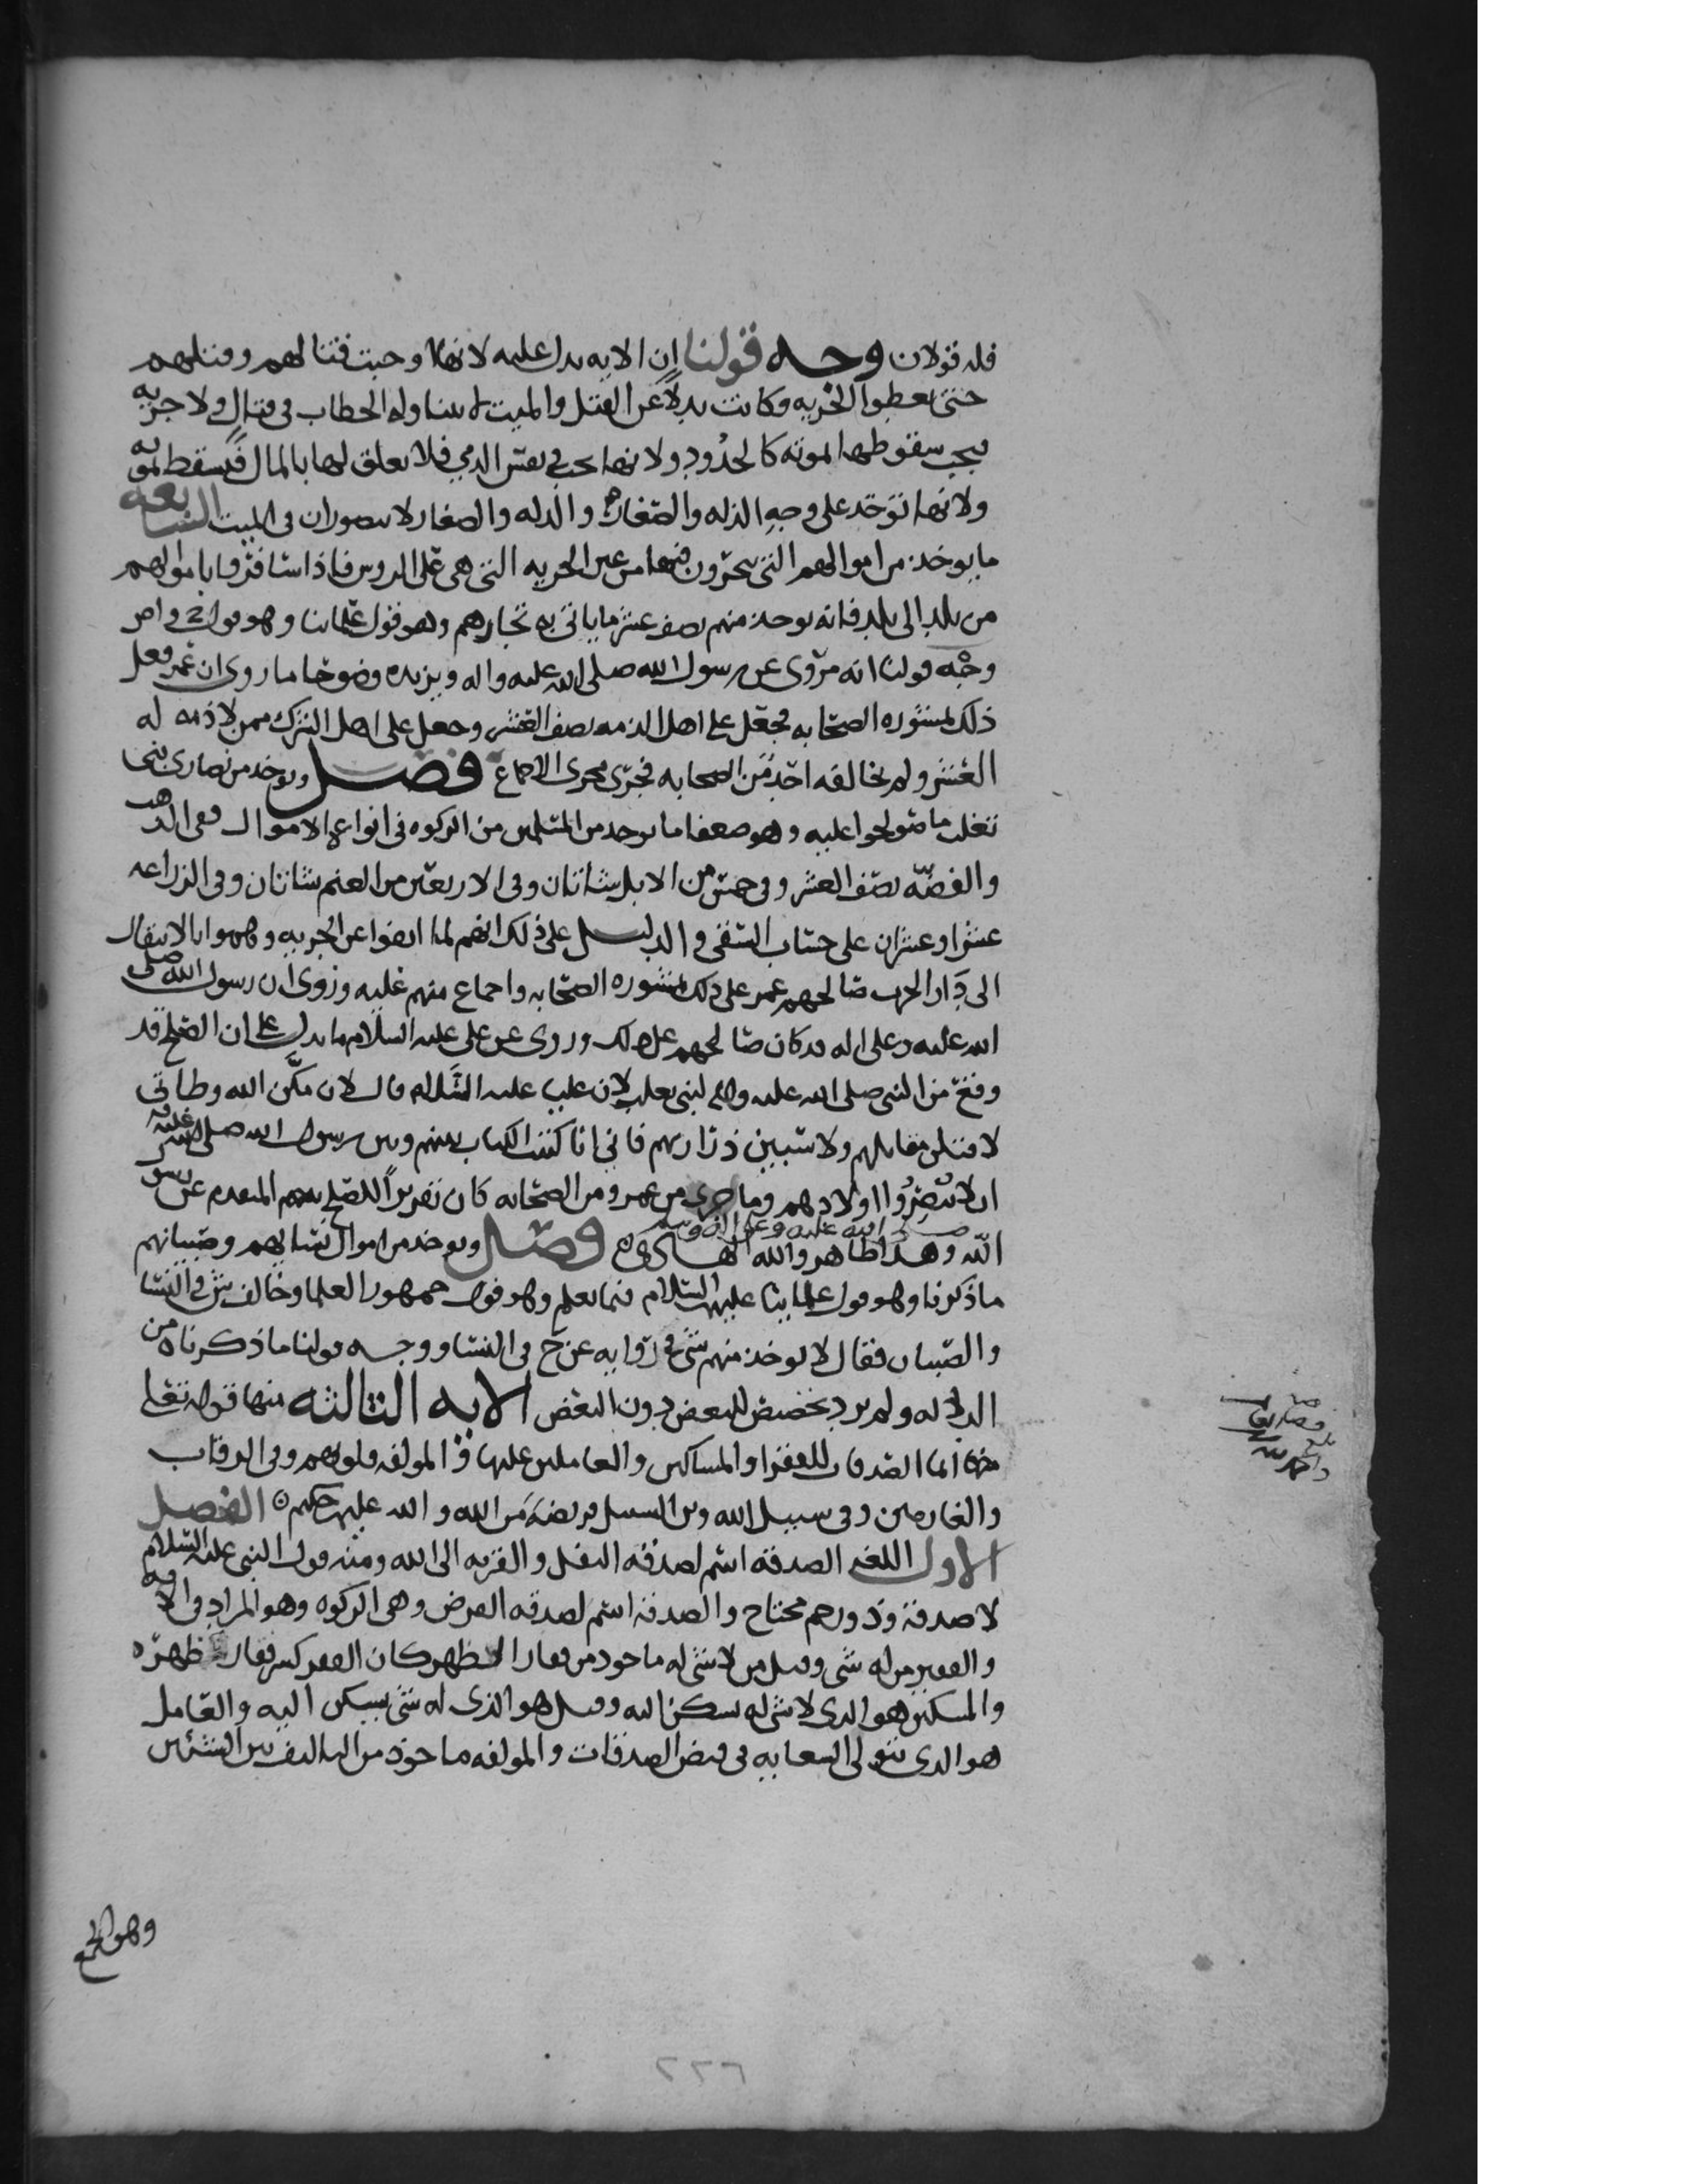 فله قولان وجه قولنا ان الايه يدل عليه لانها اوجبت قتالهم وقتلهم
حتى يعطوا الجزيه وكانت بدلا عن القتل والميت لا يتناوله الخطاب في قتال ولا جزيه
فيجب سقوطها لموته كالحدود ولانها تجب في نفس الذمي فلا تعلق لها بالمال فيسقط لموته
ولانها توخذ على وجه الذله والصغار والذله والصغار لا يتصوران في الميت السابعه
ما يوخذ من اموالهم التي يتجرون فيها من غير الجزيه التي هي على الروس فاذا سافروا باموالهم
من بلد الى بلد فانه يوخذ منهم نصف عشر ما ياتي به تجارهم وهو قول علمائنا وهو قول
وجه قولنا انه مروي عن رسول الله صلى الله عليه واله ويزيده وضوحا ما روي ان عمر فعل
ذلك بمشوره الصحابه فجعل على اهل الذمه نصف العشر وجعل على اهل الشرك ممن لا ذمه له
العشر ولم يخالفه احد من الصحابه فجرى مجرى الاجماع فصل ويوخذ من نصارى بني
تغلب ما صولحوا عليه وهو ضعفا ما يوخذ من المسلمين من الزكوه في انواع الاموال ففي الذهب
والفضه نصف العشر وفي خمس من الابل شاتان وفي الاربعين من الغنم شاتان وفي الزراعه
عشر او عشران على حساب السقي والدليل على ذلك انهم لما انفوا عن الجزيه وهموا بالانتقال
الى دار الحرب صالحهم عمر على ذلك بمشوره الصحابه واجماع منهم عليه وروي ان رسول الله صلى
الله عليه وعلى اله قد كان صالحهم على ذلك وروي عن علي عليه السلام ما يدل على ان الصلح قد
وقع من النبي صلى الله عليه واله لبني تغلب لان عليا عليه السلام قال لان مكن الله وطاتي
لاقتلن مقاتلهم ولاسبين ذراريهم فاني انا كتبت الكتاب بينهم وبين رسول الله صلى الله عليه
ان لا ينصروا اولادهم وما جرى من عمر ومن الصحابه كان تقريرا للصلح بينهم المتقدم عن رسو
الله صلى الله عليه وعلى اله وسلم وهذا ظاهر والله الهادي فصل ويوخذ من اموال نسائهم وصبيانهم
ما ذكرنا وهو قول علمائنا عليهم السلام فيما نعلم وهو قول جمهور العلما وخالف ش في النسا
والصبيان فقال لا يوخذ منهم شي وفي روايه عن ح في النسا ووجه قولنا ما ذكرناه من
الدلاله ولم يرد تخصيص للبعض دون البعض الايه الثالثه منها قوله تعالى
انما الصدقات للفقرا والمساكين والعاملين عليها والمولفه قلوبهم وفي الرقاب
والغارمين وفي سبيل الله وبن السبيل فريضه من الله والله عليم حكيم الفصل
الاول اللغه الصدقه اسم لصدقه النفل والقربه الى الله ومنه قول النبي عليه السلام
لا صدقه وذو رحم محتاج والصدقه اسم لصدقه الفرض وهي الزكوه وهو المراد في الايه
والفقير من له شي وقيل من لا شي له ماخوذ من فقار الظهر كان الفقر كسر فقار ظهره
والمسكين هو الذي لا شي له يسكن اليه وقيل هو الذي له شي يسكن اليه والعامل
هو الذي يتولى السعايه في قبض الصدقات والمولفه ماخوذ من التاليف بين الشيئين
وهو الجمع
٢٢٦